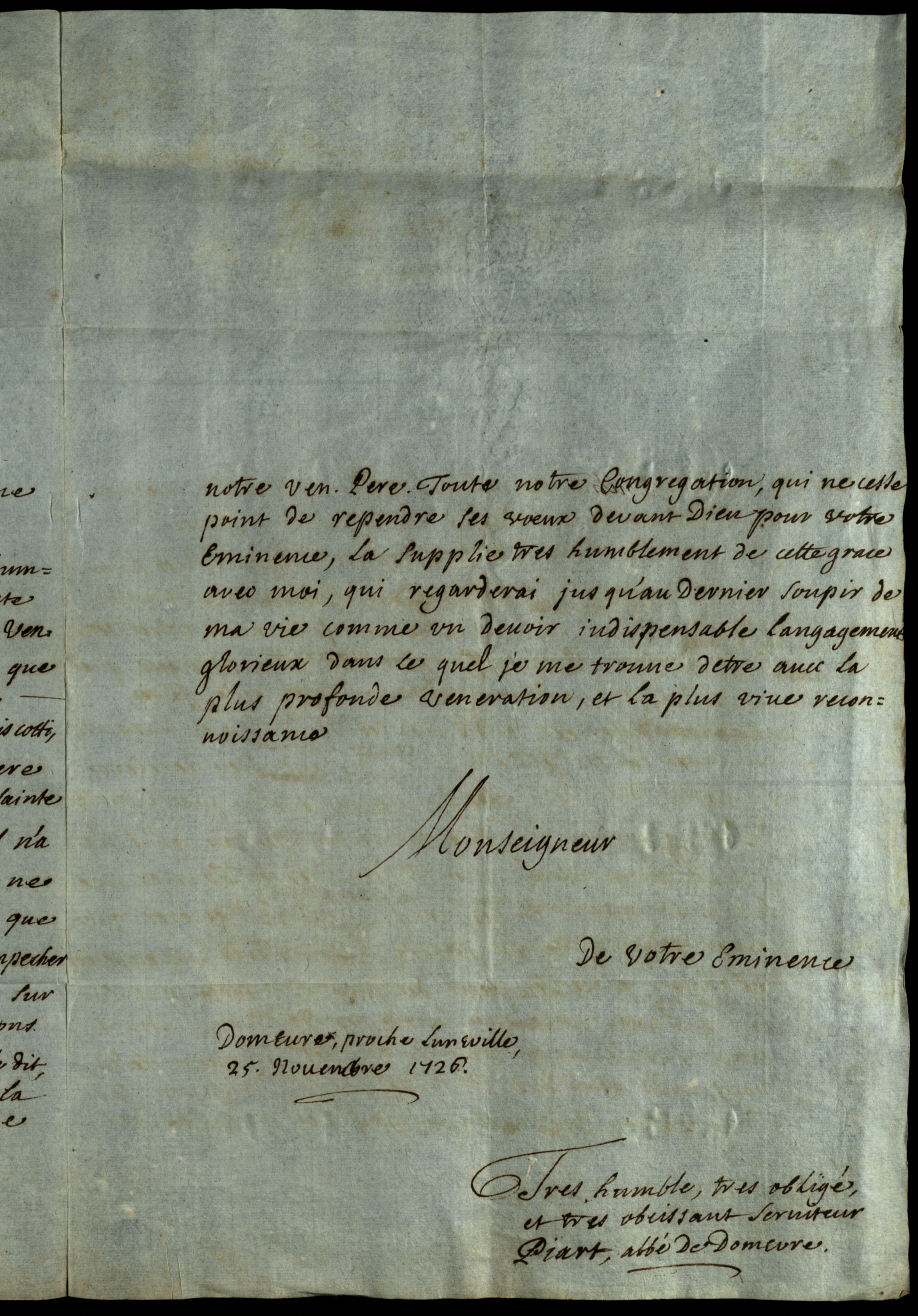 ne
um=
te
Ven
que
iscotti,
ere
Sainte
n'a
ne
que
mpecher
sur
ons.
dit,
la
e
notre ven. Pere. Toute notre Congregation, qui ne cesse
point de rependre ses voeux devant Dieu pour votre
Eminence, la supplie tres humblement de cette grace
avec moi, qui regarderai jusqu'au Dernier soupir de
ma vie comme vn devoir indispensable langagement
glorieux dans le quel je me trouue detre auec la
plus profonde veneration, et la plus viue recon=
noissance
Monseigneur
De votre Eminence
Domeure, proche Luneville,
25. Nouembre 1726.
Tres humble, tres obligé,
et tres obeissant seruiteur
Piart, abbé De Domeure.